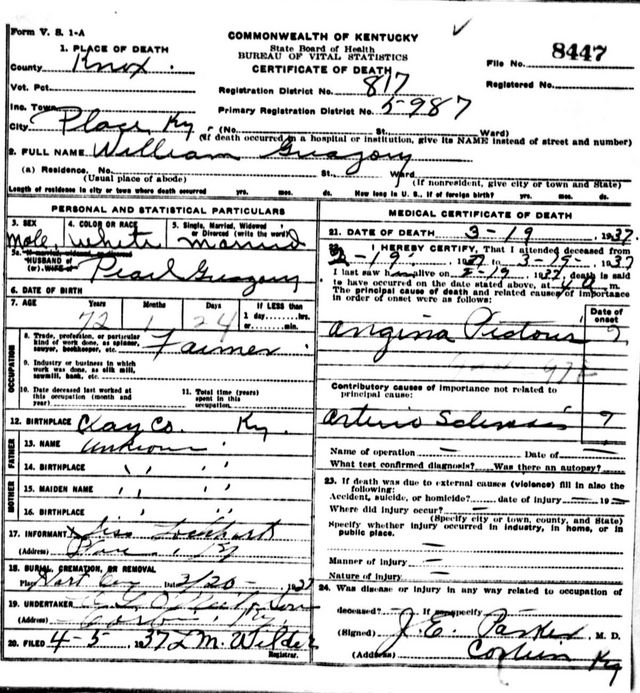 Form V. S. 1-A
COMMONWEALTH OF KENTUCKY
State Board of Health
BUREAU OF VITAL STATISTICS
CERTIFICATE OF DEATH
File No. 8447
Registered No.
1. PLACE OF DEATH
County Knox
Vot. Pct.
Inc. Town
City Place, Ky (No. St. Ward)
Registration District No. 817
Primary Registration District No. 5987
(If death occurred in a hospital or institution, give its NAME instead of street and number)
2. FULL NAME William Gregory
(a) Residence, No. St., Ward
(Usual place of abode) (If nonresident, give city or town and State)
Length of residence in city or town where death occurred yrs. mos. ds. How long in U. S., if of foreign birth? yrs. mos. ds.
PERSONAL AND STATISTICAL PARTICULARS
3. SEX 4. COLOR OR RACE 5. Single, Married, Widowed or Divorced (write the word)
Male White Married
5a. If married, widowed or divorced
HUSBAND of
(or) WIFE of Pearl Gregory
6. DATE OF BIRTH
7. AGE Years Months Days If LESS than
1 day hrs.
or min.
72 1 24
OCCUPATION
8. Trade, profession, or particular kind of work done, as spinner, sawyer, bookkeeper, etc. Farmer
9. Industry or business in which work was done, as silk mill, sawmill, bank, etc.
10. Date deceased last worked at this occupation (month and year)
11. Total time (years) spent in this occupation.
12. BIRTHPLACE Clay Co. Ky.
FATHER
13. NAME unknown
14. BIRTHPLACE " "
MOTHER
15. MAIDEN NAME " "
16. BIRTHPLACE " "
17. INFORMANT
(Address)
18. BURIAL, CREMATION, OR REMOVAL
Place Date 3/20 - 1937
19. UNDERTAKER
Address Corbin, Ky
20. FILED 4-5, 1937 L M. Wilder
Registrar.
MEDICAL CERTIFICATE OF DEATH
21. DATE OF DEATH 3-19, 1937.
22. I HEREBY CERTIFY, That I attended deceased from
2-19, 1937 to 3-19-, 1937
I last saw him alive on 19, 1937, death is said
to have occurred on the date stated above, at 4 a m.
The principal cause of death and related causes of importance in order of onset were as follows:
Date of onset
Angina Pectoris ?
Contributory causes of importance not related to principal cause:
Arterio Sclerosis ?
Name of operation — Date of —
What test confirmed diagnosis? — Was there an autopsy? —
23. If death was due to external causes (violence) fill in also the following:
Accident, suicide, or homicide? date of injury — 19—
Where did injury occur? —
(Specify city or town, county, and State)
Specify whether injury occurred in industry, in home, or in public place. —
Manner of injury —
Nature of injury —
24. Was disease or injury in any way related to occupation of
deceased? — If so, specify —
(Signed) J. E. Parker, M. D.
(Address) Corbin Ky